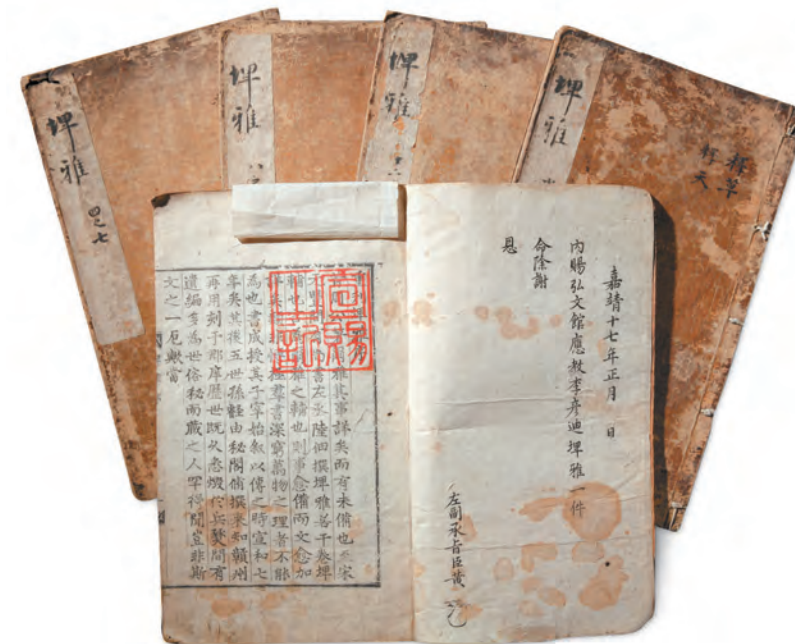 埤雅
四之七
埤雅
埤雅
埤雅
釋草
釋天
嘉靖十七年正月 日
內賜弘文館應敎李彦迪埤雅一件
命除謝
恩
左副承旨臣黃
雅其事詳矣而有未備也至宋
書左丞陸佃撰埤雅若干卷埤
輔也
雅之輔也則事愈備而文愈加
羣書深窮萬物之理者不能
為也書成授其子宰始叙以傳之時宣和七
年矣其後五世孫由秘閣脩撰來知贛州
再用刻于郡庠歷世既久悉燬於兵燹間有
遺編多為世俗秘而職之人罕得聞豈非斯
文之一厄歟當